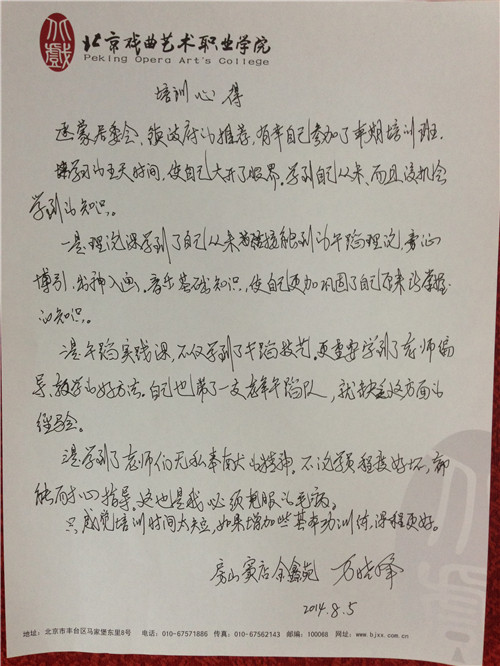 北戏
北京戏曲艺术职业学院
Peking Opera Art's College
培训心得
承蒙居委会、镇政府的推荐,有幸自己参加了本期培训班.
学习的五天时间,使自己大开了眼界。学到自己从来、而且没机会
学到的知识。
一是理论课学到了自己从来接触到的午蹈理论,旁证
博引,出神入画。音乐基础知识,使自己更加巩固了自己原来所掌握
的知识。
二是午蹈实践课,不仅学到了午蹈技艺。更重要学到了老师编
导、教学的好方法。自己也带了一支老年午蹈队,就缺乏这方面的
经验。
三是学到了老师们无私奉献的精神。不论学员程度好坏,都
能耐心指导。这也是我必须克服的毛病。
只感觉培训时间太短,如果增加些基本功训练,课程更好。
房山窦店金鑫苑
2014.8.5
地址:北京市丰台区马家堡东里8号 电话:010-67571886 传真:010-67562143 邮编:100068 网址:www.bjxx.com.cn